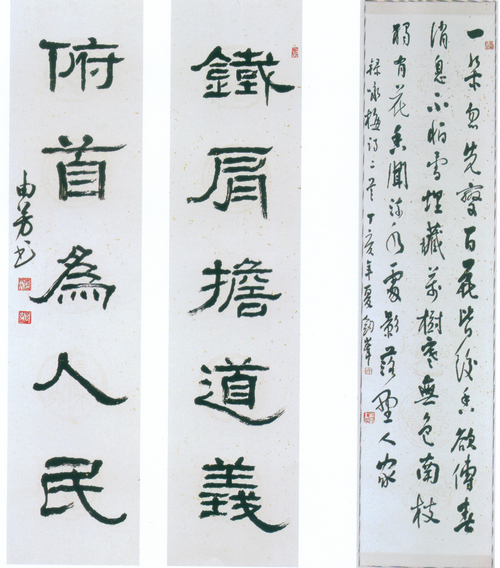 一朵忽先變百花皆後香欲傳春
消息不怕雪埋藏萬樹寒無色南枝
獨有花香聞流水處影落野人家
錄咏梅詩二首丁亥年夏
鐵肩擔道義
俯首為人民
由芳书